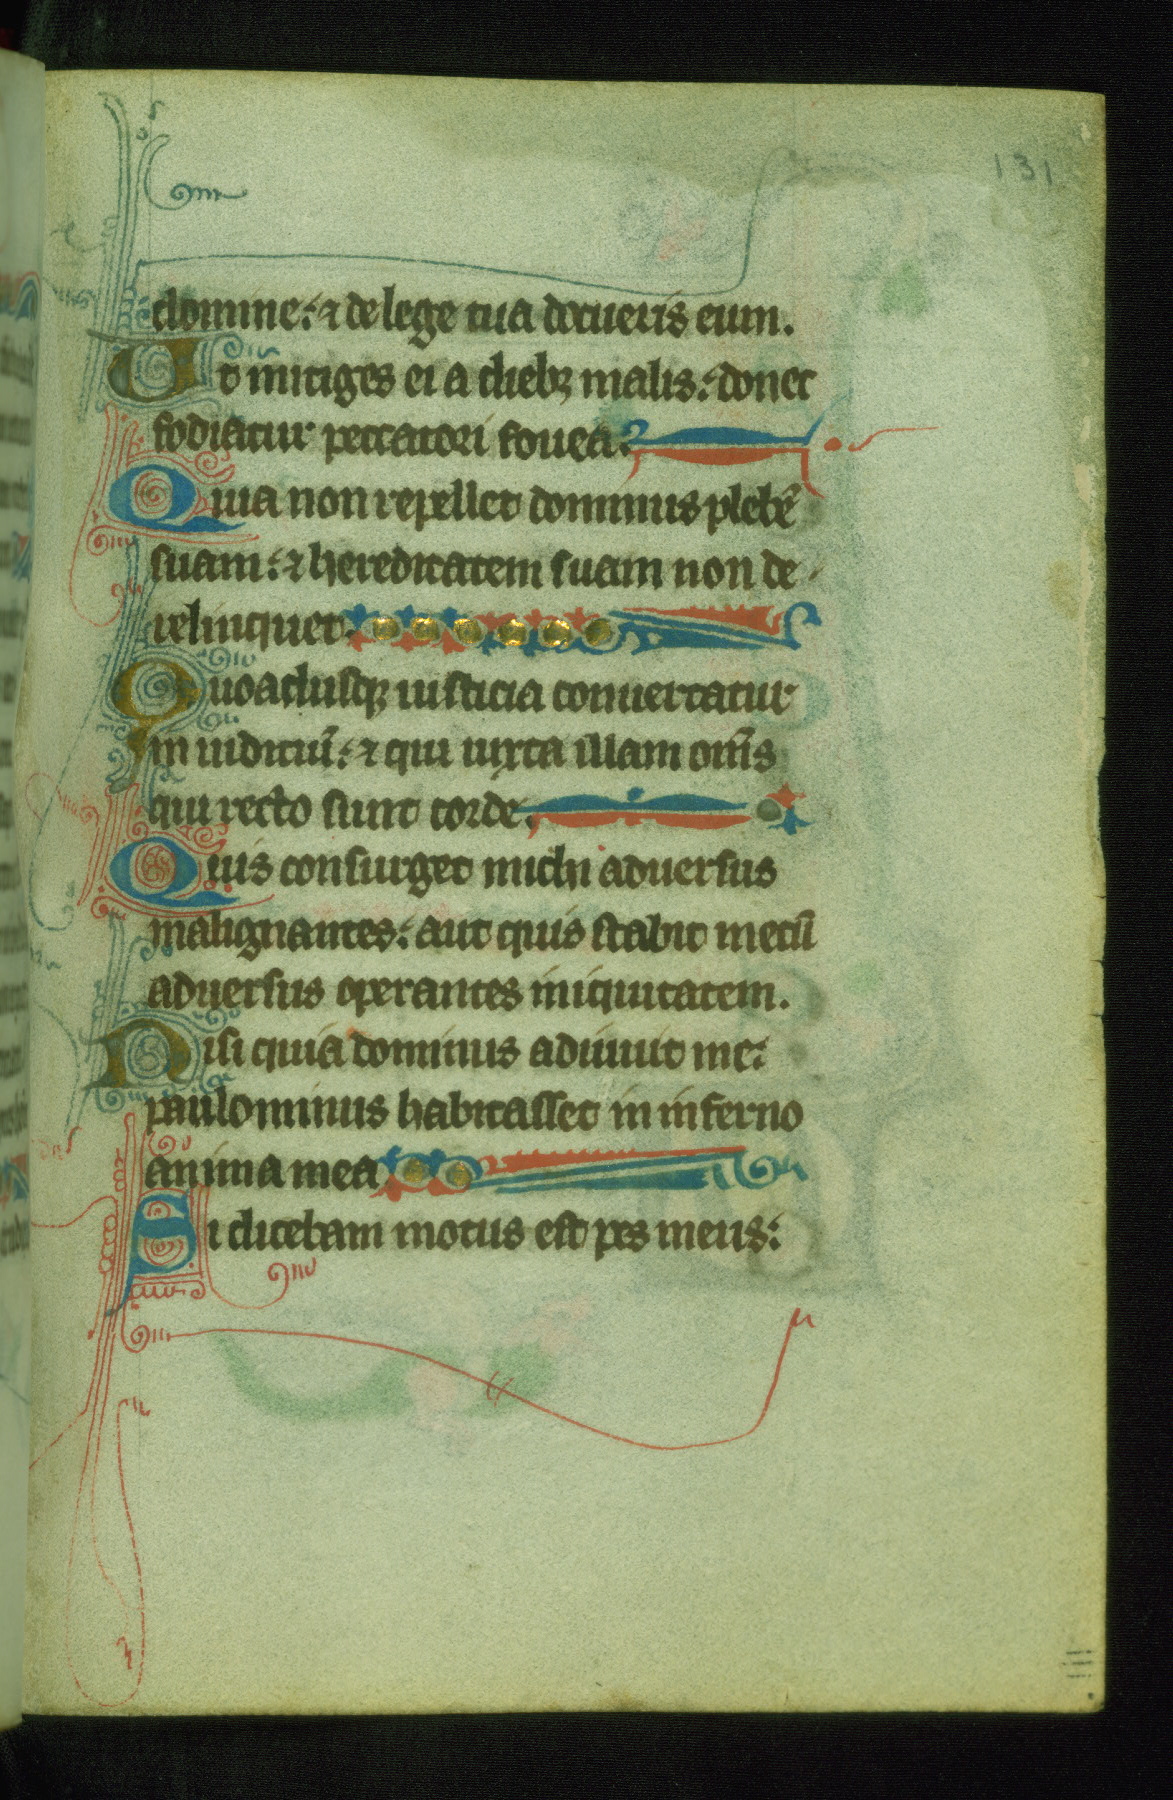 131
domine: ⁊ de lege tua docueris eum.
Ut mitiges ei a diebꝫ malis: donec
fodiatur peccatori fouea.
Quia non repellet dominus plebē
suam: ⁊ hereditatem suam non de
relinquet.
Quoadusqꝫ iusticia conuertatur
in iudiciū: ⁊ qui iuxta illam om̄s
qui recto sunt corde.
Quis consurget michi aduersus
malignantes: aut quis stabit mecū
aduersus operantes iniquitatem.
Nisi quia dominus adiuuit me:
paulominus habitasset in inferno
anima mea
Si dicebam motus est pes meus: